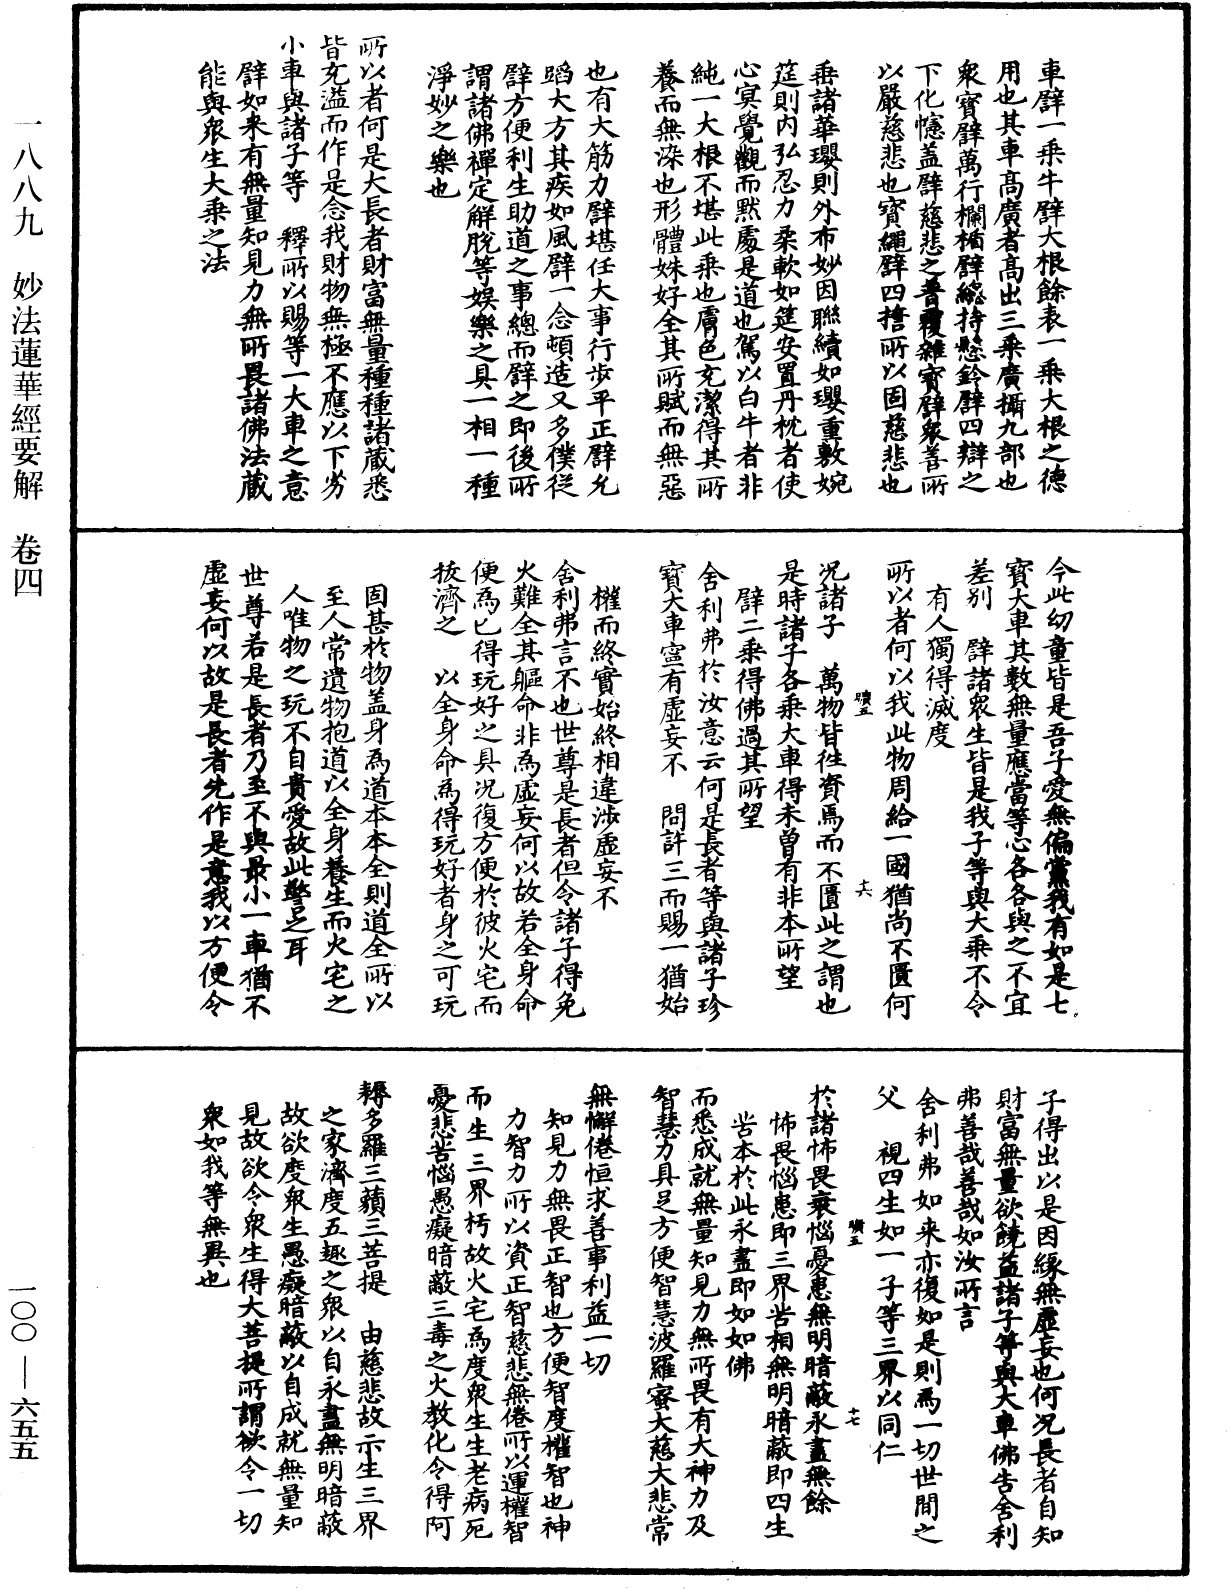 車譬一乘牛譬大根餘表一乘大根之德
用也其車高廣者高出三乘廣攝九部也
衆寶譬萬行欄楯譬總持懸鈴譬四辯之
下化幰盖譬慈悲之普覆雜寶譬衆善所
以嚴慈悲也寶繩譬四誓所以固慈悲也
垂諸華瓔則外布妙因聯續如瓔重敷婉
筵則内弘忍力柔軟如筵安置丹枕者使
心㝠覺觀而默處是道也駕以白牛者非
純一大根不堪此乘也膚色充潔得其所
養而無染也形體姝好全其所賦而無惡
也有大筋力譬堪任大事行步平正譬允
蹈大方其疾如風譬一念頓造又多僕從
譬方便利生助道之事總而譬之即後所
謂諸佛禪定解脫等娛樂之具一相一種
淨妙之樂也
所以者何是大長者財富無量種種諸藏悉
皆充溢而作是念我財物無極不應以下劣
小車與諸子等　釋所以賜等一大車之意
譬如来有無量知見力無所畏諸佛法藏
能與衆生大乘之法
今此幼童皆是吾子愛無偏黨我有如是七
寶大車其數無量應當等心各各與之不宜
差别　譬諸衆生皆是我子等與大乘不令
有人獨得滅度
所以者何以我此物周給一國猶尚不匱何
况諸子　萬物皆徃資焉而不匱此之謂也
是時諸子各乘大車得未曾有非本所望
譬二乘得佛過其所望
舍利弗於汝意云何是長者等與諸子珍
寶大車寧有虛妄不　問許三而賜一猶始
權而終實始終相違涉虛妄不
舍利弗言不也世尊是長者但令諸子得免
火難全其軀命非爲虛妄何以故若全身命
便爲已得玩好之具况復方便於彼火宅而
拔濟之　以全身命爲得玩好者身之可玩
固甚於物盖身爲道本本全則道全所以
至人常遺物抱道以全身養生而火宅之
人唯物之玩不自貴愛故此警之耳
世尊若是長者乃至不與最小一車猶不
虛妄何以故是長者先作是意我以方便令
子得出以是因緣無虛妄也何况長者自知
財富無量欲饒益諸子等與大車佛告舍利
弗善哉善哉如汝所言
舍利弗如来亦復如是則爲一切世間之
父　視四生如一子等三界以同仁
於諸怖畏衰惱憂患無明暗蔽永盡無餘
怖畏惱患即三界苦相無明暗蔽即四生
苦本於此永盡即如如佛
而悉成就無量知見力無所畏有大神力及
智慧力具足方便智慧波羅蜜大慈大悲常
無懈倦恒求善事利益一切
知見力無畏正智也方便智度權智也神
力智力所以資正智慈悲無倦所以運權智
而生三界朽故火宅爲度衆生生老病死
憂悲苦惱愚癡暗蔽三毒之火教化令得阿
耨多羅三藐三菩提　由慈悲故示生三界
之家濟度五趣之衆以自永盡無明暗蔽
故欲度衆生愚癡暗蔽以自成就無量知
見故欲令衆生得大菩提所謂欲令一切
衆如我等無異也
曠五
十六
曠五
十七
一八八九　妙法蓮華經要解　卷四
一〇〇—六五五